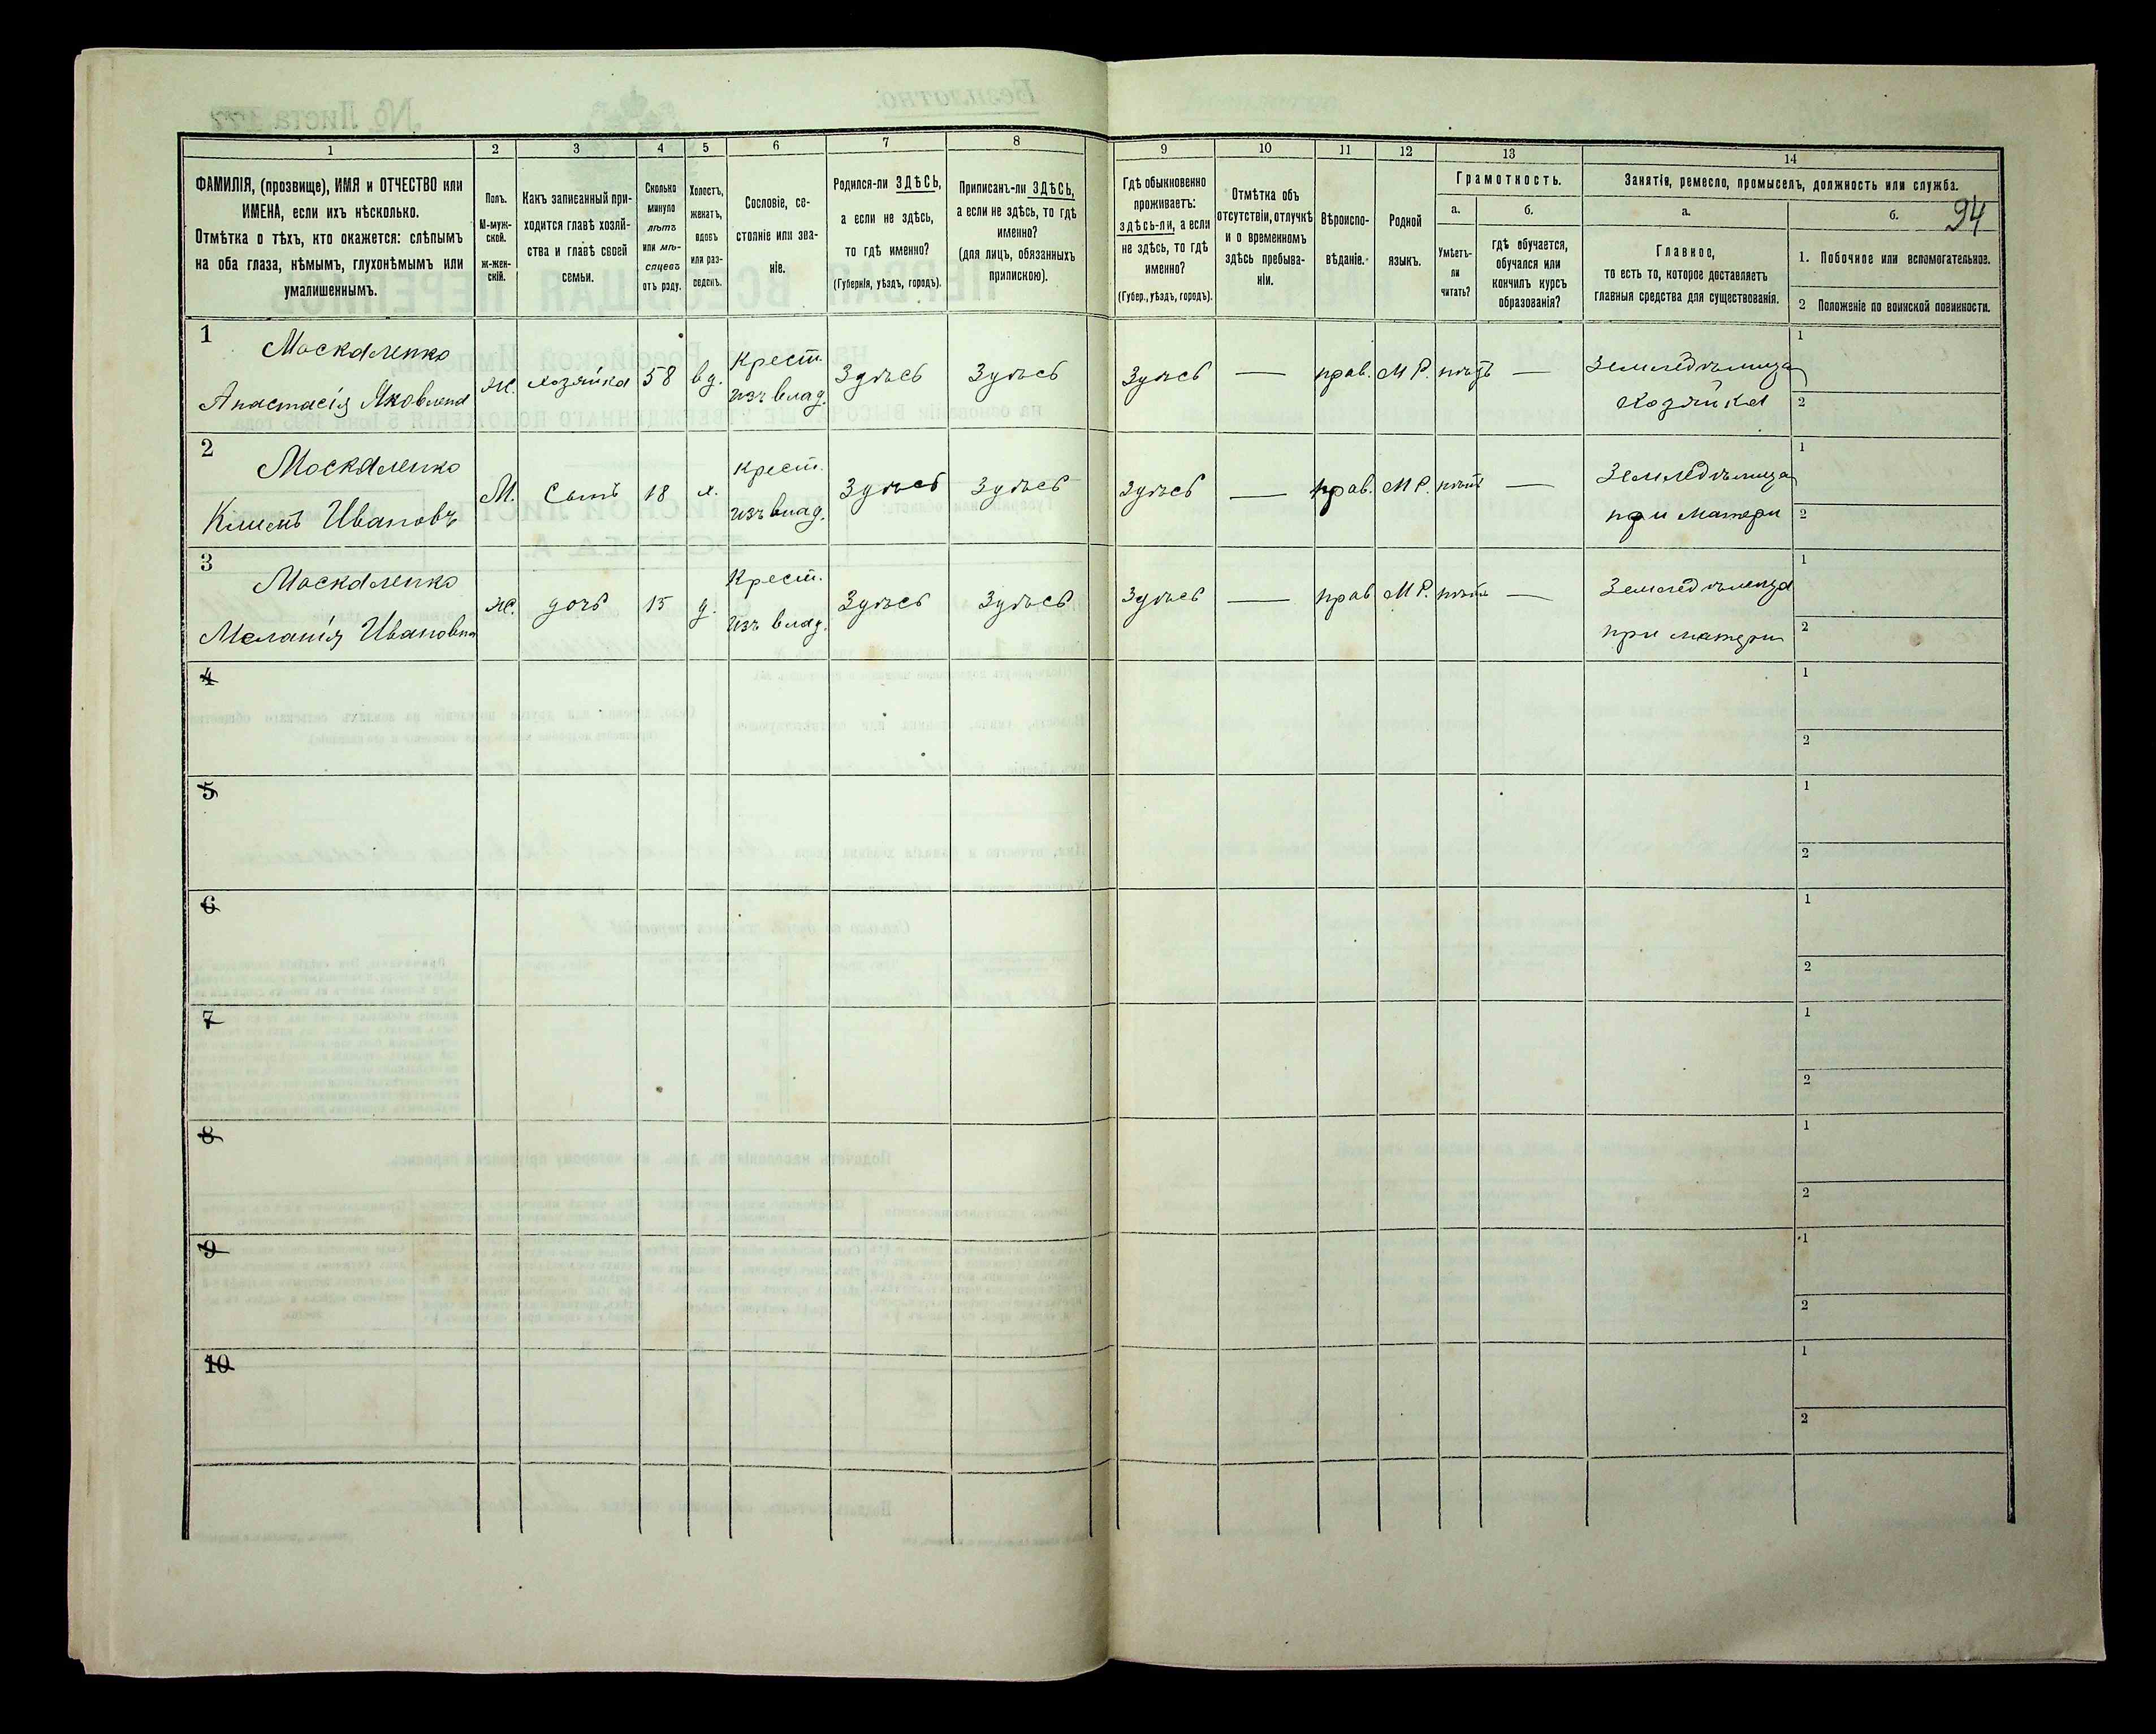 1
2
3
4
5
6
7
8
9
10
11
12
13
14
ФАМИЛІЯ, (прозвище), ИМЯ и ОТЧЕСТВО или
ИМЕНА, если ихъ нѣсколько.
Отмѣтка о тѣхъ, кто окажется: слѣпымъ
на оба глаза, нѣмымъ, глухонѣмымъ или
умалишеннымъ.
Полъ.
М-муж-
ской.
ж-жен-
скій.
Какъ записанный при-
ходится главѣ хозяй-
ства и главѣ своей
семьи.
Сколько
минуло
лѣтъ
или мѣ-
сяцевъ
отъ роду.
Холостъ,
женатъ,
вдовъ
или раз-
веденъ.
Сословіе, со-
стояніе или зва-
ніе.
Родился-ли ЗДѢСЬ,
а если не здѣсь,
то гдѣ именно?
(Губернія, уѣздъ, городъ).
Приписанъ-ли ЗДѢСЬ,
а если не здѣсь, то гдѣ
именно?
(для лицъ, обязанныхъ
припискою).
Гдѣ обыкновенно
проживаетъ:
здѣсь-ли, а если
не здѣсь, то гдѣ
именно?
(Губер., уѣздъ, городъ).
Отмѣтка объ
отсутствіи, отлучкѣ
и о временномъ
здѣсь пребыва-
ніи.
Вѣроиспо-
вѣданіе.
Родной
языкъ.
Грамотность.
а.
Умѣетъ-
ли
читать?
б.
гдѣ обучается,
обучался или
кончилъ курсъ
образованія?
Занятія, ремесло, промыселъ, должность или служба.
а.
Главное,
то есть то, которое доставляетъ
главныя средства для существованія.
б.
94
1. Побочное или вспомогательное.
2 Положеніе по воинской повинности.
1
Москаленко
Анастасія Яковлена
ж. хозяйка 58 вд. Крест. изъ влад. Здѣсь Здѣсь Здѣсь — прав. М Р. нѣтъ — Земледѣлица хозяйка
1
2
2
Москаленко
Климъ Ивановъ
М. Сынъ 18 х. Крест. изъ влад. Здѣсь Здѣсь Здѣсь — прав. М Р. нѣтъ — Земледѣлица при матери
1
2
3
Москаленко
Меланія Ивановна
ж. дочь 15 д. Крест. изъ влад. Здѣсь Здѣсь Здѣсь — прав М Р. нѣтъ — Земледѣлица при матери
1
2
4
1
2
5
1
2
6
1
2
7
1
2
8
1
2
9
1
2
10
1
2